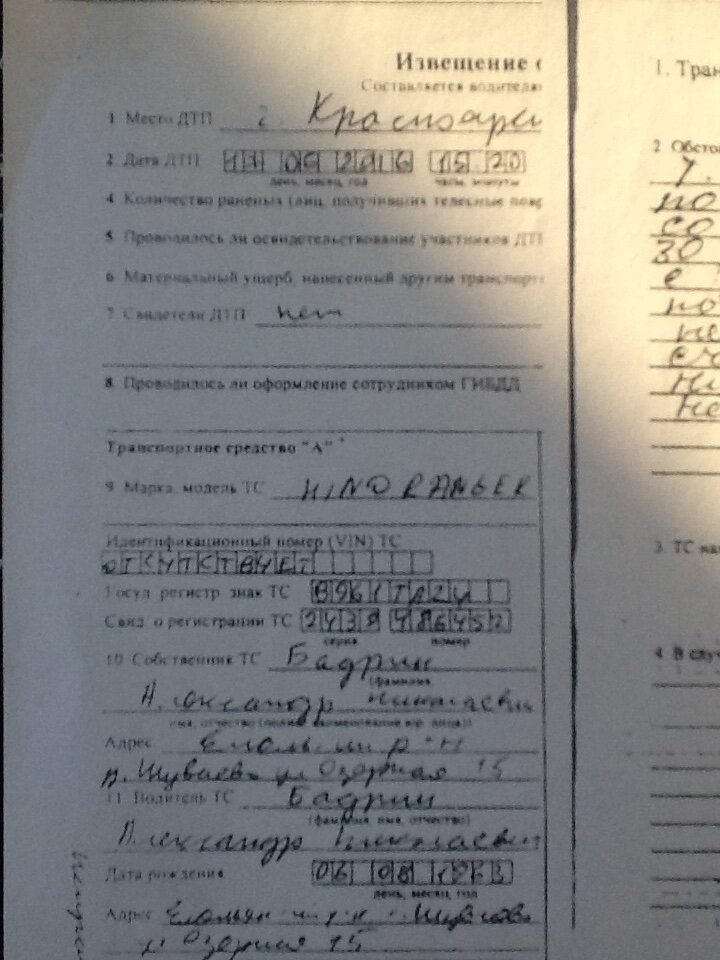 Извещение о
Составляется водителя
1. Тран
1 Место ДТП г. Краснояр
2 Дата ДТП 2016 15 20
день, месяц, год часы, минуты
2 Обсто
4 Количество раненых (лиц, получивших телесные повр
по
со
5 Проводилось ли освидетельствование участников ДТП
30
6 Материальный ущерб, нанесенный другим транспорт
с
7. Свидетели ДТП нет
но
не
8 Проводилось ли оформление сотрудником ГИБДД
не
Транспортное средство "А"
9 Марка, модель ТС HINO RANGER
Идентификационный номер (VIN) ТС
3. ТС на
Госуд. регистр. знак ТС
Свид. о регистрации ТС 2438
серия номер
4 В случ
10 Собственник ТС Бадрин
(фамилия
Александр Николаевич
имя, отчество (полное наименование юр. лица))
Адрес Емельян р-н
п. Шуваево ул Озерная 15
11. Водитель ТС Бадрин
(фамилия, имя, отчество)
Александр Николаевич
Дата рождения 06 08
день, месяц, год
Адрес Емельян
ул Озерная 15